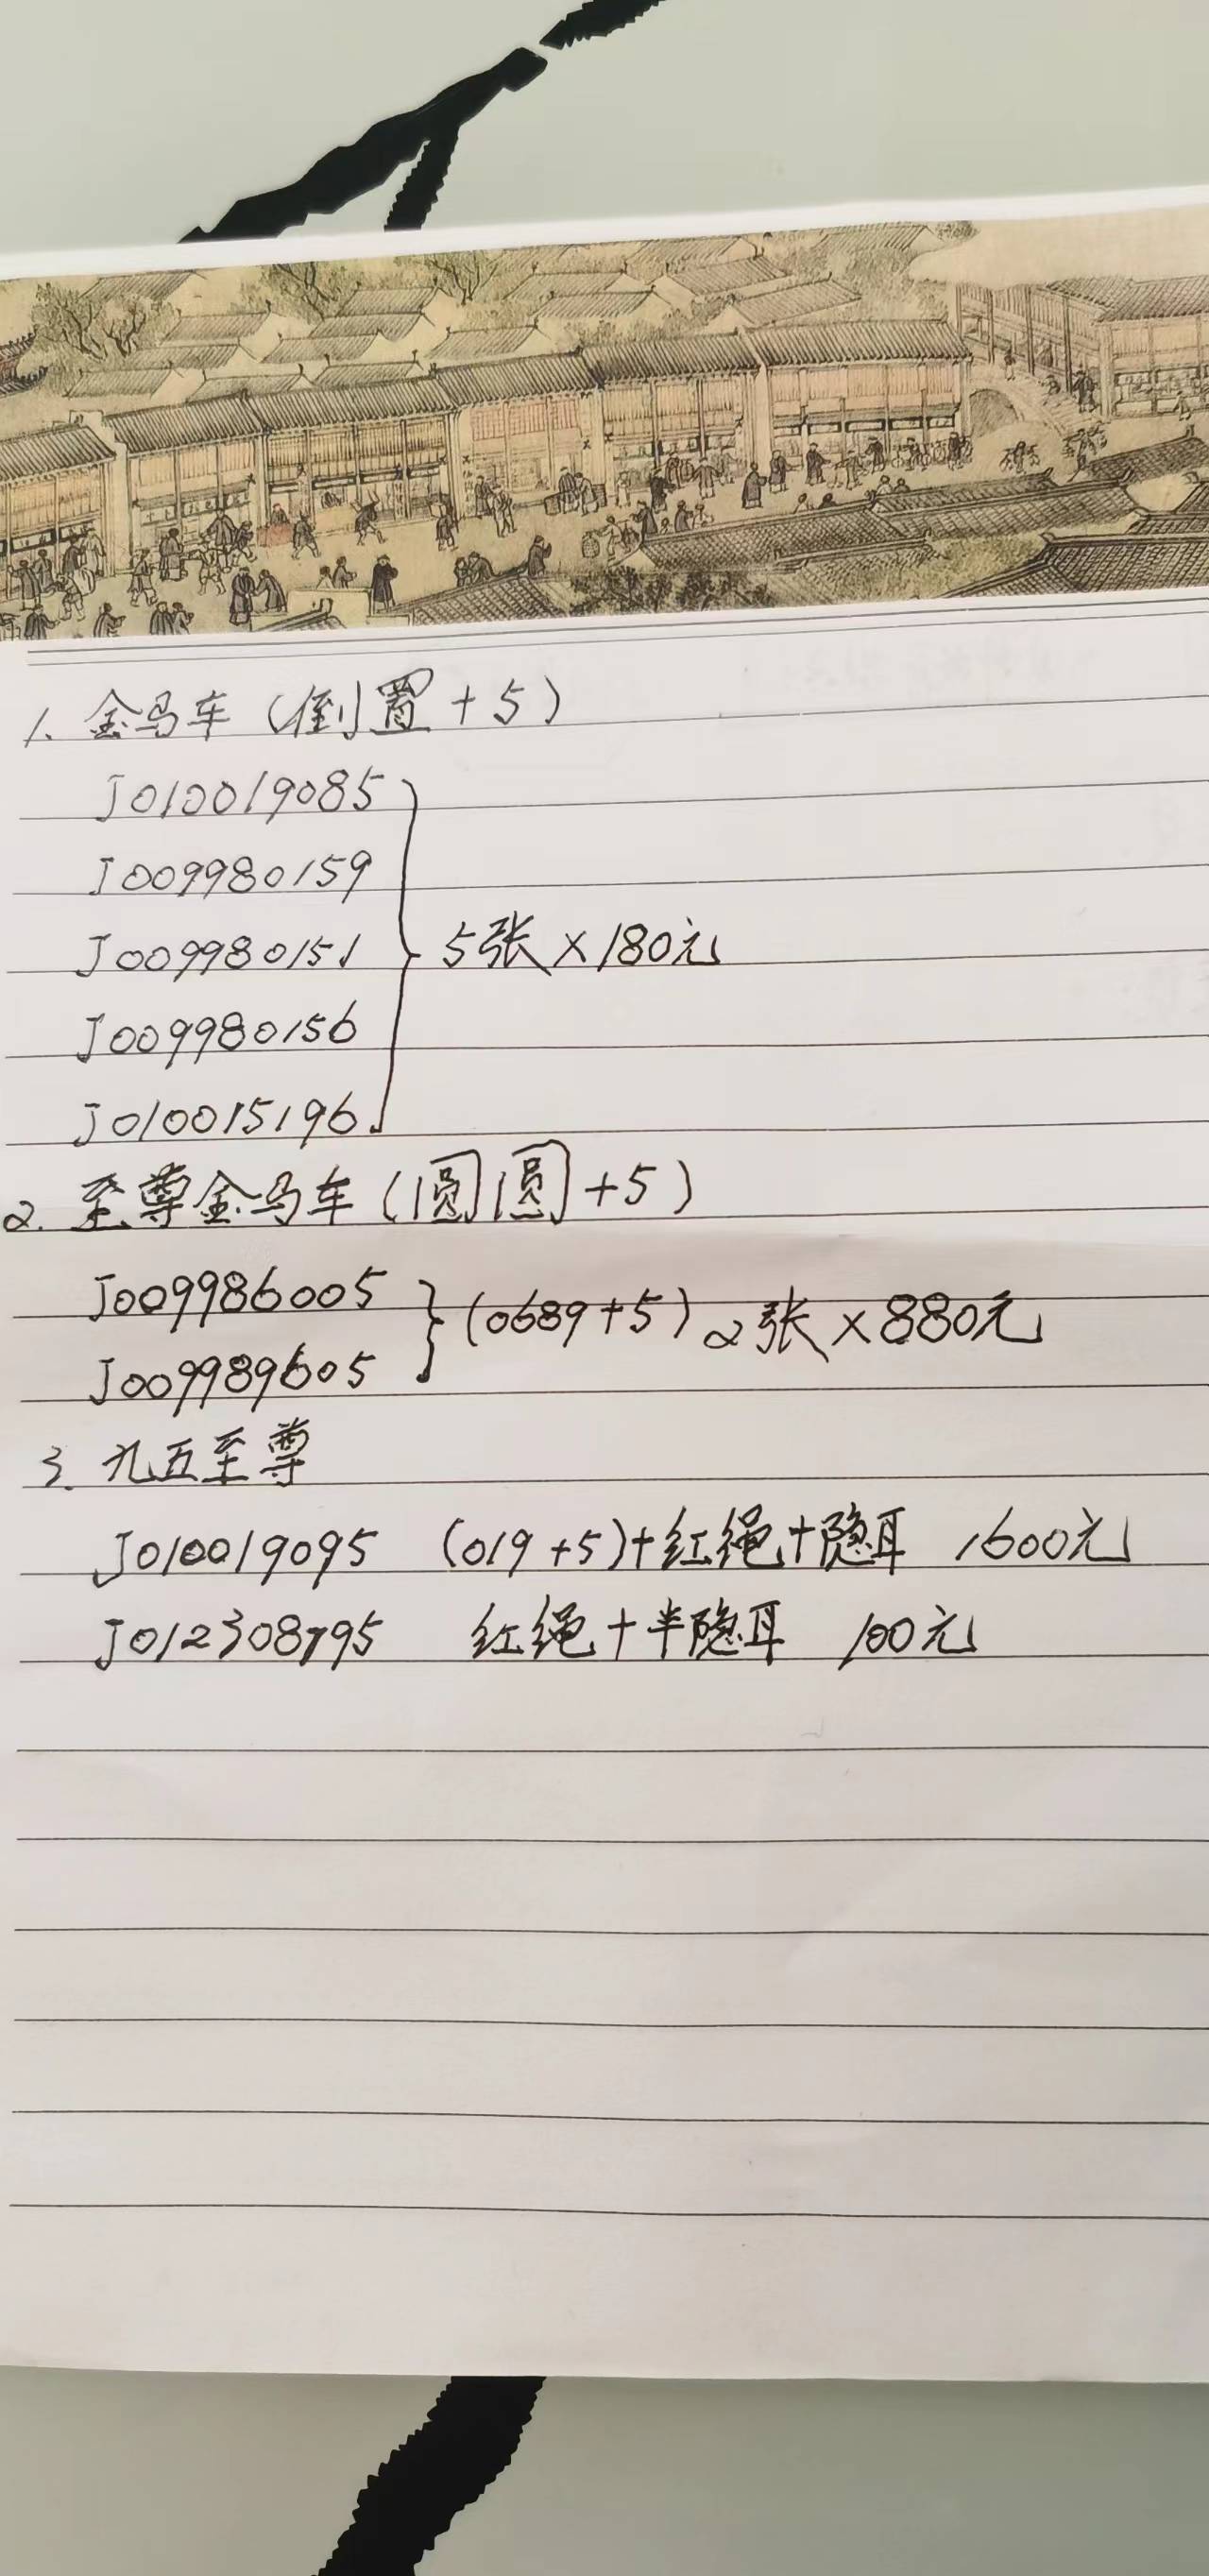 1. 金马车（倒置+5）
J010019085
J009980159
J009980151
J009980156
J010015196
5张×180元
2. 至尊金马车（圆圆+5）
J009986005
J009989605
（0689+5）2张×880元
3. 九五至尊
J010019095 （019+5）+红绳+隐耳 1600元
J012308795 红绳+半隐耳 100元